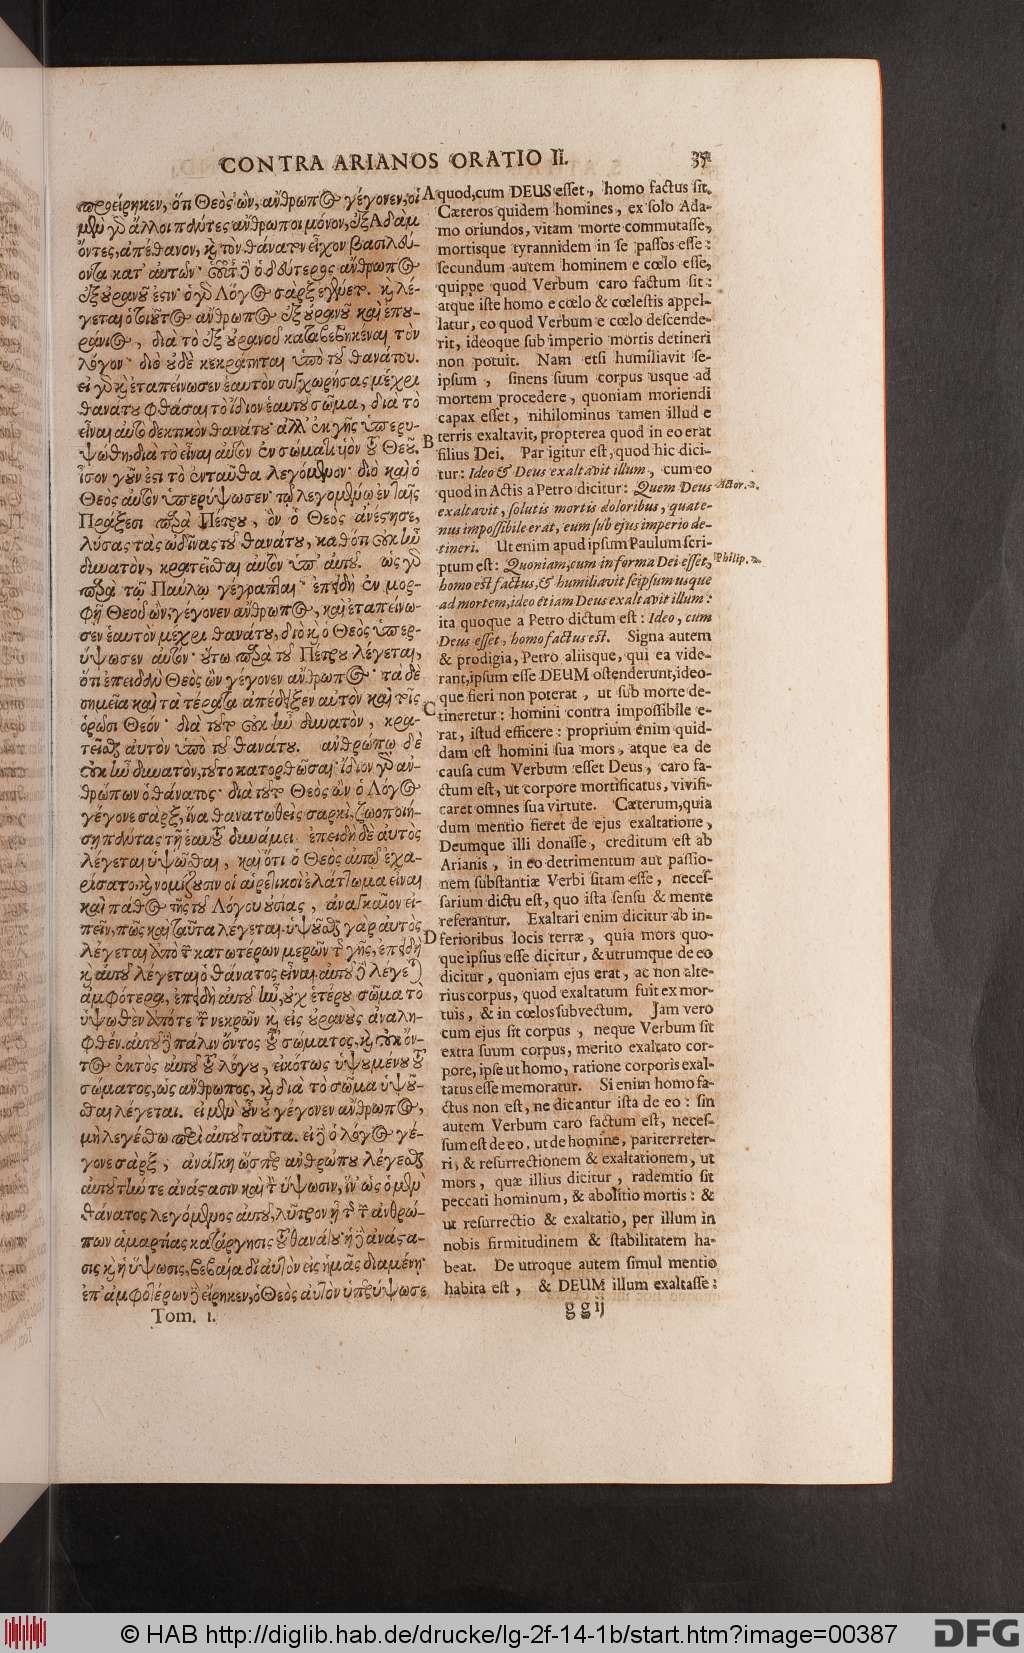 CONTRA ARIANOS ORATIO II. 35
προείρηκεν, ὅτι Θεὸς ὢν, ἄνθρωπος γέγονεν, οἱ
μὲν γὰρ ἄλλοι πάντες ἄνθρωποι μόνον, ἐξ Αδὰμ
ὄντες, ἀπέθανον, καὶ τὸν θάνατον εἶχον βασιλεύ-
οντα κατ' αὐτῶν· οὗτος δὲ ὁ δεύτερος ἄνθρωπος
ἐξ οὐρανοῦ ἐστιν· ὁ γὰρ Λόγος σαρξ ἐγένετο. καὶ λέ-
γεται ὁ τοιοῦτος ἄνθρωπος ἐξ οὐρανοῦ καὶ ἐπου-
ράνιος, διὰ τὸ ἐξ οὐρανοῦ καταβεβηκέναι τὸν
λόγον· διὸ οὐδὲ κεκράτηται ὑπὸ τοῦ θανάτου.
εἰ γὰρ καὶ ἐταπείνωσεν ἑαυτὸν συγχωρήσας μέχρι
θανάτου φθάσαι τὸ ἴδιον ἑαυτοῦ σῶμα, διὰ τὸ
εἶναι αὐτὸ δεκτικὸν θανάτου· ἀλλ' ἐκ γῆς ὑπερυ-
ψώθη, διὰ τὸ εἶναι αὐτὸν ἐν σώματι υἱὸν τοῦ Θεοῦ.
ἴσον γοῦν ἐστι τὸ ἐνταῦθα λεγόμενον· διὸ καὶ ὁ
Θεὸς αὐτὸν ὑπερύψωσεν· τῷ λεγομένῳ ἐν ταῖς
Πράξεσι παρὰ Πέτρου, ὃν ὁ Θεὸς ἀνέστησε,
λύσας τὰς ὠδῖνας τοῦ θανάτου, καθότι οὐκ ἦν
δυνατὸν, κρατεῖσθαι αὐτὸν ὑπ' αὐτοῦ. ὡς γὰρ
παρὰ τῷ Παύλῳ γέγραπται· ἐπειδὴ ἐν μορ-
φῇ Θεοῦ ὢν, γέγονεν ἄνθρωπος, καὶ ἐταπείνω-
σεν ἑαυτὸν μέχρι θανάτου, διὸ καὶ ὁ Θεὸς ὑπερ-
ύψωσεν αὐτόν· οὕτω παρὰ τοῦ Πέτρου λέγεται,
ὅτι ἐπειδὴ Θεὸς ὢν γέγονεν ἄνθρωπος· τὰ δὲ
σημεῖα καὶ τὰ τέρατα ἀπέδειξεν αὐτὸν καὶ τοῖς
ὁρῶσι Θεόν· διὰ τοῦτο οὐκ ἦν δυνατὸν, κρα-
τεῖσθαι αὐτὸν ὑπὸ τοῦ θανάτου. ἀνθρώπῳ δὲ
οὐκ ἦν δυνατὸν, τοῦτο κατορθῶσαι· ἴδιον γὰρ ἀν-
θρώπων ὁ θάνατος· διὰ τοῦτο Θεὸς ὢν ὁ Λόγος
γέγονε σὰρξ, ἵνα θανατωθεὶς σαρκὶ, ζωοποιή-
σῃ πάντας τῇ ἑαυτοῦ δυνάμει· ἐπειδὴ δὲ αὐτὸς
λέγεται ὑψῶσθαι, καὶ ὅτι ὁ Θεὸς αὐτῷ ἐχα-
ρίσατο, καὶ νομίζουσιν οἱ αἱρετικοὶ ἐλάττωμα εἶναι
καὶ πάθος τῆς τοῦ Λόγου οὐσίας, ἀναγκαῖον εἰ-
πεῖν, πῶς καὶ ταῦτα λέγεται. ὑψοῦσθαι γὰρ αὐτὸς
λέγεται ἀπὸ τῶν κατωτέρων μερῶν τῆς γῆς, ἐπειδὴ
καὶ αὐτοῦ λέγεται ὁ θάνατος εἶναι. αὐτοῦ δὲ λέγεται
ἀμφότερα, ἐπειδὴ αὐτοῦ ἦν, οὐχ ἑτέρου σῶμα τὸ
ὑψωθὲν ἀπό τε τῶν νεκρῶν καὶ εἰς οὐρανοὺς ἀναλη-
φθέν. αὐτοῦ δὲ πάλιν ὄντος τοῦ σώματος, καὶ οὐκ ὄν-
τος ἐκτὸς αὐτοῦ τοῦ λόγου, εἰκότως ὑψουμένου τοῦ
σώματος, ὡς ἄνθρωπος, καὶ διὰ τὸ σῶμα ὑψοῦ-
σθαι λέγεται. εἰ μὲν οὖν οὐ γέγονεν ἄνθρωπος,
μὴ λεγέσθω περὶ αὐτοῦ ταῦτα. εἰ δὲ ὁ λόγος γέ-
γονε σὰρξ, ἀνάγκη ὥσπερ ἀνθρώπου λέγεσθαι
αὐτοῦ τήν τε ἀνάστασιν καὶ τὴν ὕψωσιν, ἵν' ὡς ὁ μὲν
θάνατος λεγόμενος αὐτοῦ, λύτρον ᾖ τῆς τῶν ἀνθρώ-
πων ἁμαρτίας κατάργησις τοῦ θανάτου· ἡ δὲ ἀνάστα-
σις καὶ ἡ ὕψωσις, βεβαία δι' αὐτὸν εἰς ἡμᾶς διαμένῃ·
ἐπ' ἀμφοτέρων δὲ εἴρηκεν, ὁ Θεὸς αὐτὸν ὑπερύψωσε
Tom. I.
A quod, cum DEUS esset, homo factus sit.
Cæteros quidem homines, ex solo Ada-
mo oriundos, vitam morte commutasse,
mortisque tyrannidem in se passos esse:
secundum autem hominem e cœlo esse,
quippe quod Verbum caro factum sit:
atque iste homo e cœlo & cœlestis appel-
latur, eo quod Verbum e cœlo descende-
rit, ideoque sub imperio mortis detineri
non potuit. Nam etsi humiliavit se-
ipsum, sinens suum corpus usque ad
mortem procedere, quoniam moriendi
capax esset, nihilominus tamen illud e
B terris exaltavit, propterea quod in eo erat
filius Dei. Par igitur est, quod hic dici-
tur: Ideo & Deus exaltavit illum, cum eo
quod in Actis a Petro dicitur: Quem Deus Actor. 2.
exaltavit, solutis mortis doloribus, quate-
nus impossibile erat, eum sub ejus imperio de-
tineri. Ut enim apud ipsum Paulum scri-
ptum est: Quoniam, cum in forma Dei esset, Philip. 2.
homo est factus, & humiliavit seipsum usque
ad mortem, ideo etiam Deus exaltavit illum:
ita quoque a Petro dictum est: Ideo, cum
Deus esset, homo factus est. Signa autem
& prodigia, Petro aliisque, qui ea vide-
rant, ipsum esse DEUM ostenderunt, ideo-
que fieri non poterat, ut sub morte de-
C tineretur: homini contra impossibile e-
rat, istud efficere: proprium enim quid-
dam est homini sua mors, atque ea de
causa cum Verbum esset Deus, caro fa-
ctum est, ut corpore mortificatus, vivifi-
caret omnes sua virtute. Cæterum, quia
dum mentio fieret de ejus exaltatione,
Deumque illi donasse, creditum est ab
Arianis, in eo detrimentum aut passio-
nem substantiæ Verbi sitam esse, neces-
sarium dictu est, quo ista sensu & mente
referantur. Exaltari enim dicitur ab in-
D ferioribus locis terræ, quia mors quo-
que ipsius esse dicitur, & utrumque de eo
dicitur, quoniam ejus erat, ac non alte-
rius corpus, quod exaltatum fuit ex mor-
tuis, & in cœlos subvectum. Jam vero
cum ejus sit corpus, neque Verbum sit
extra suum corpus, merito exaltato cor-
pore, ipse ut homo, ratione corporis exal-
tatus esse memoratur. Si enim homo fa-
ctus non est, ne dicantur ista de eo: sin
autem Verbum caro factum est, neces-
sum est de eo, ut de homine, pariter refer-
ri, & resurrectionem & exaltationem, ut
mors, quæ illius dicitur, rademtio sit
peccati hominum, & abolitio mortis: &
ut resurrectio & exaltatio, per illum in
nobis firmitudinem & stabilitatem ha-
beat. De utroque autem simul mentio
habita est, & DEUM illum exaltasse:
gg ij
© HAB http://diglib.hab.de/drucke/lg-2f-14-1b/start.htm?image=00387
DFG